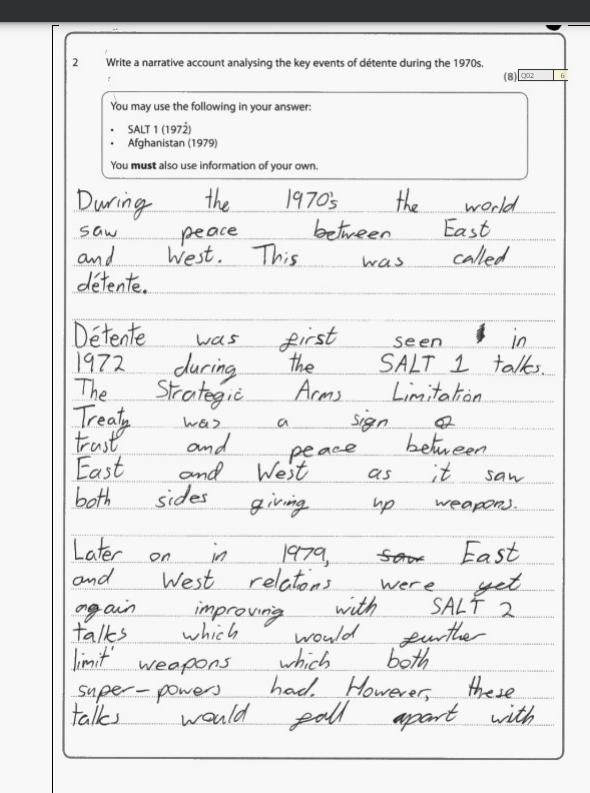 2 Write a narrative account analysing the key events of détente during the 1970s.
(8) Q02 6
You may use the following in your answer:
• SALT 1 (1972)
• Afghanistan (1979)
You must also use information of your own.
During the 1970's the world
saw peace between East
and West. This was called
détente.
Détente was first seen in
1972 during the SALT 1 talks.
The Strategic Arms Limitation
Treaty was a sign o
trust and peace between
East and West as it saw
both sides giving up weapons.
Later on in 1979, saw East
and West relations were yet
again improving with SALT 2
talks which would further
limit weapons which both
super-powers had. However, these
talks would fall apart with